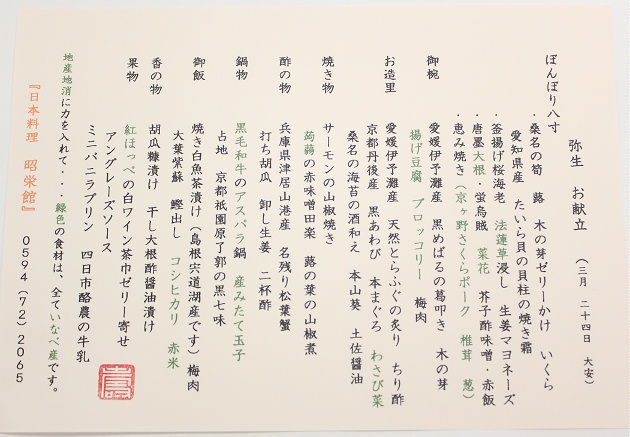 弥生　お献立　（三月　二十四日　大安）
ぼんぼり八寸
・桑名の筍　蕗　木の芽ゼリーかけ　いくら
愛知県産　たいら貝の貝柱の焼き霜
・釜揚げ桜海老　法蓮草浸し　生姜マヨネーズ
・唐墨大根・蛍烏賊　菜花　芥子酢味噌・赤飯
・恵み焼き（京ヶ野さくらポーク　椎茸　葱）
御椀　愛媛伊予灘産　黒めばるの葛叩き　木の芽
揚げ豆腐　ブロッコリー　梅肉
お造里　愛媛伊予灘産　天然とらふぐの炙り　ちり酢
京都丹後産　黒あわび　本まぐろ　わさび菜
桑名の海苔の酒和え　本山葵　土佐醤油
焼き物　サーモンの山椒焼き
蒟蒻の赤味噌田楽　蕗の葉の山椒煮
酢の物　兵庫県津居山港産　名残り松葉蟹
打ち胡瓜　卸し生姜　二杯酢
鍋物　黒毛和牛のアスパラ鍋　産みたて玉子
占地　京都祇園原了郭の黒七味
御飯　焼き白魚茶漬け（島根宍道湖産です）梅肉
大葉紫蘇　鰹出し　コシヒカリ　赤米
香の物　胡瓜糠漬け　干し大根酢醤油漬け
果物　紅ほっぺの白ワイン茶巾ゼリー寄せ
アングレーズソース
ミニバニラプリン　四日市酪農の牛乳
地産地消に力を入れて・・・緑色の食材は、全ていなべ産です。
『日本料理　昭栄館』　0594(72)2065